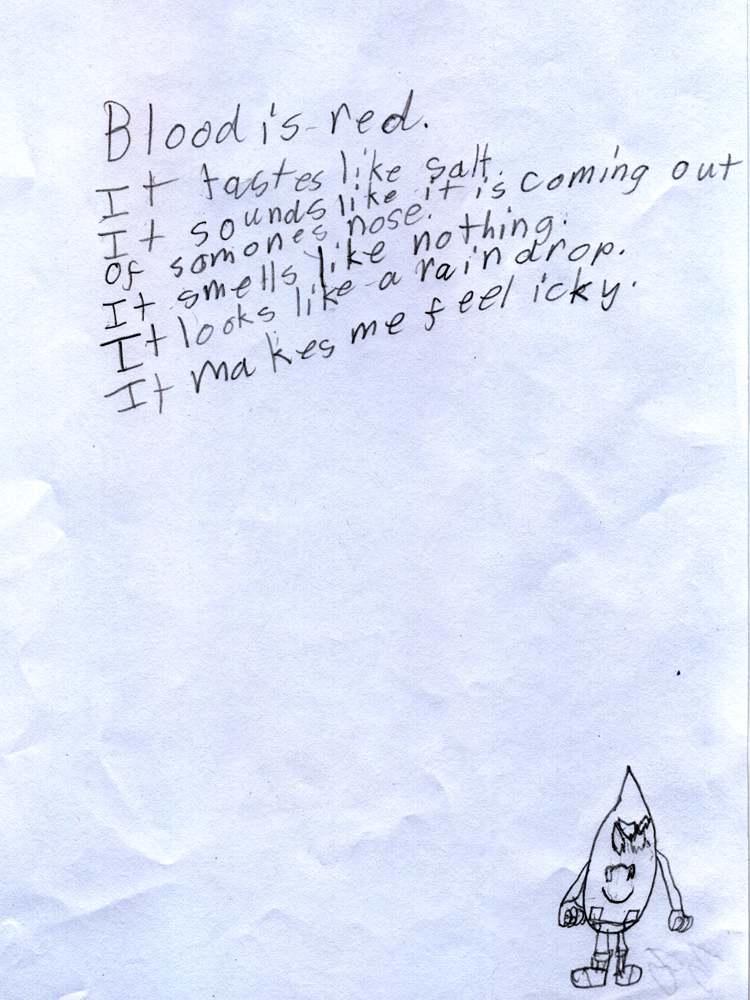 Blood is red.
It tastes like salt.
It sounds like it is coming out
of somones nose.
It smells like nothing.
It looks like a raindrop.
It makes me feel icky.